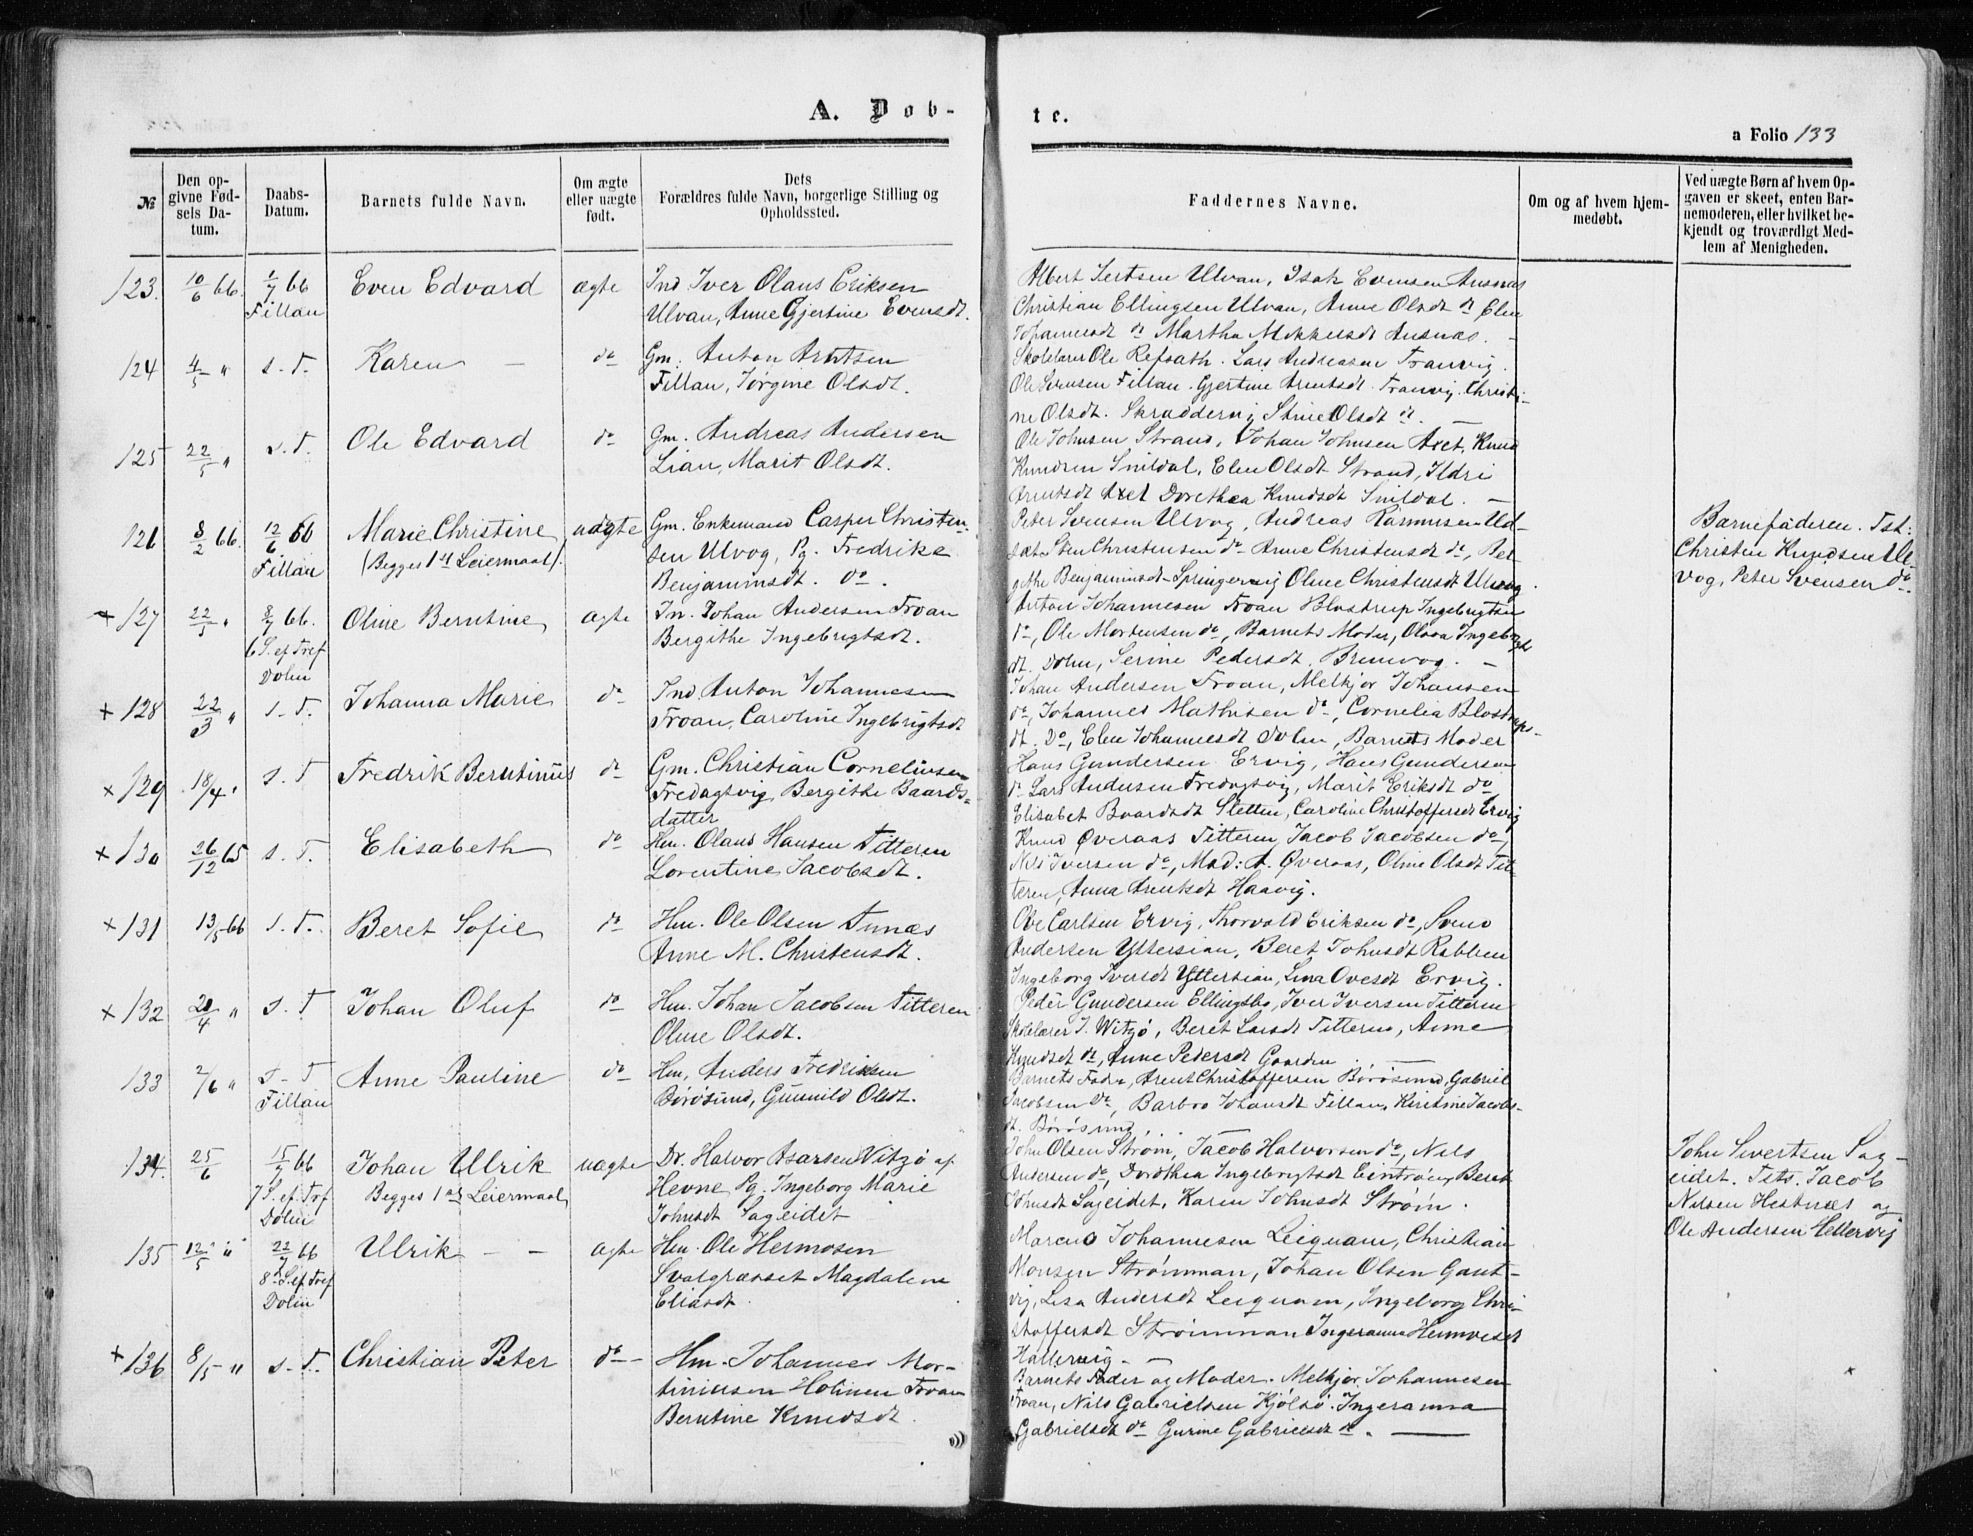 A. Døb-
te.
a Folio 133
№
Den op-
givne Fød-
sels Da-
tum.
Daabs-
Datum.
Barnets fulde Navn.
Om ægte
eller uægte
født.
Dets
Forældres fulde Navn, borgerlige Stilling og
Opholdssted.
Faddernes Navne.
Om og af hvem hjem-
medøbt.
Ved uægte Børn af hvem Op-
gaven er skeet, enten Bar-
nemoderen, eller hvilket be-
kjendt og troværdigt Med-
lem af Menigheden.
123. 10/6 66. 1/7 66 Even Edvard ægte Ind Iver Olaus Eriksen
Fillan Ulvan, Anne Gjertine Evensdt.
Albert Sertsen Ulvan, Isak Evensen Ausnæs
Christian Ellingsen Ulvan, Anne Olsdt do Elen
Johannesdt do Martha Mikkelsdt Ausnæs.
124 4/5 " s. T. Karen — do Gm. Anton Arntsen
Fillan, Jørgine Olsdt.
Skolelærer Ole Refsath. Lars Andreasen Tranvig.
Ole Svensen Fillan. Gjertine Arentsdt. Tranvig. Christi-
ne Olsdt. Skraddervig Stine Olsdt do. —
125 22/5 " s. T. Ole Edvard do Gm. Andreas Andersen
Lian, Marit Olsdt.
Ole Johnsen Strand, Johan Johnsen Axet, Knud
Knudsen Snildal, Elen Olsdt Strand, Ildri
Arentsdt Axet Dorethea Knudsdt Snildal. —
126 8/2 66. 12/6 66 Marie Christine uægte Gm. Enkemand Casper Christen-
Fillan (Begges 1st Leiermaal). sen Ulvog, Pg. Fredrikke
Benjaminsdt. do.
Peter Svensen Ulvog, Andreas Rasmusen Ud-
sæt. Sten Christensen do Anne Christensdt do, Ber
githe Benjaminsdt Springervig Oline Christensdt Ulvog
Barnefaderen. Tst:
Christen Knudsen Ul-
vog, Peter Svensen do.
+ 127 22/5 " 8/7 66. Oline Berntine ægte In. Johan Andersen Froan
6 S. ef Tref Bergithe Ingebrigtsdt.
Dolm
Anton Johannesen Froan Blostrup Ingebrigtsen
do, Ole Mortensen do, Barnets Moder, Olava Ingebrigts
dt. Dolm, Serine Pedersdt. Brunvog. —
+ 128 22/3 " s. T. Johanna Marie do Ind Anton Johannesen
Froan, Caroline Ingebrigtsdt
Johan Andersen Froan, Melkjor Johansen
do, Johannes Mathisen do, Cornelia Blostrups-
dt. do, Elen Johannesdt Dolm, Barnets Moder
+ 129 18/4 " s. T Fredrik Berntinus do Gm. Christian Corneliusen
Fredagsvig Bergithe Baards-
datter
Hans Gundersen Ervig, Hans Gundersen
do Lars Andersen Fredagsvig, Marit Eriksdt do,
Elisabet Baardsdt Sletten, Caroline Christoffersdt Ervig
+ 130 26/12 65 s. T. Elisabeth do Hm. Olaus Hansen Titteren
Lorentine Jacobsdt.
Knud Øveraas Titteren Jacob Jacobsen do,
Nils Iversen do, Mad: A. Øveraas, Oline Olsdt Tit-
teren, Anna Arentsdt Haavig.
+ 131 13/5 66 s. T. Beret Sofie do Hm. Ole Olsen Aunæs
Anne M. Christensdt.
Ove Carlsen Ervig, Thorvald Eriksen do, Svend
Andersen Yttersian, Beret Johnsdt Rabben
Ingeborg Iversdt Yttersian, Lina Ovesdt Ervig.
+ 132 20/4 " s. T Johan Oluf do Hm. Johan Jacobsen Titteren
Oline Olsdt.
Peder Gundersen Ellingsbo, Iver Iversen Titteren
Skolelærer J. Witzø, Beret Larsdt Titteren, Anne
Knudsdt do, Anne Pedersdt Gaarden
133 2/6 " s - T Anne Pauline do Hm, Anders Fredriksen
Fillan Børøsund, Gunnild Olsdt.
Barnets Fader, Arent Christoffersen Børøsund, Gabriel
Jacobsen do, Barbro Johansdt Fillan, Kirstine Jacobs-
dt. Børøsund
134. 25/6 15/7 66 Johan Ulrik uægte Dr. Halvor Asarsen Vitzø af
7 S. ef. Tref Begges 1ste Leiermaal Hevne Pg. Ingeborg Marie
Dolm Johnsdt Sageidet
John Olsen Strøm, Jacob Halvorsen do, Nils
Andersen do, Dorothea Ingebrigtsdt Eintrøn, Beret
Johnsdt Sageidet, Karen Johnsdt Strøm.
John Sivertsen Sag-
eidet. Tsts. Jacob
Nilsen Hestnæs og
Ole Andersen Hellervig
135 12/5 " 22/7 66 Ulrik — — ægte Hm. Ole Hermosen
8 S. ef Tref Svalgræsset Magdalene
Dolm Eliasdt.
Marcus Johannesen Leiquam, Christian
Monsen Strømman, Johan Olsen Gaut-
vig, Lisa Andersdt Leiquam, Ingeborg Chri-
stoffersdt Strømman Ingeranna
Hallervig. —
+ 136 8/5 " s. T. Christian Peter do — Hm. Johannes Mor-
tiniusen Holmen Froan
Berntine Knudsdt.
Barnets Fader og Moder. Melkjor Johannesen
Froan, Nils Gabrielsen Kjølsø. Ingeranna
Gabrielsdt do Gurine Gabrielsdt do. —